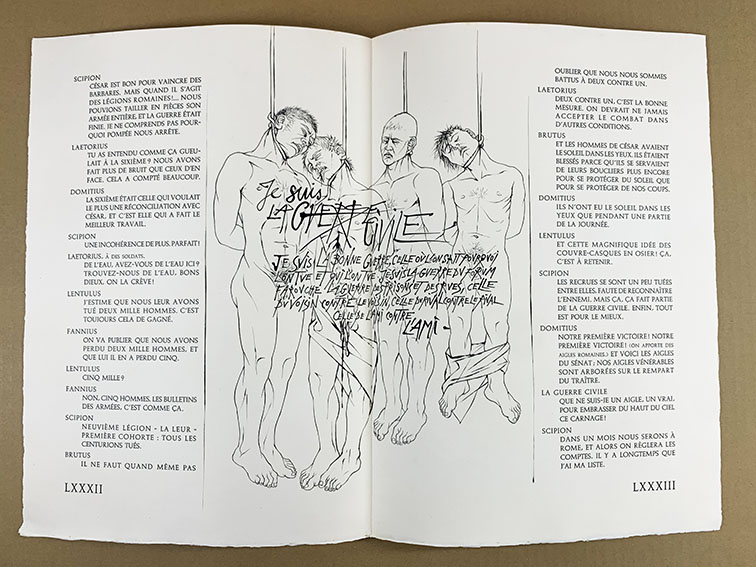 SCIPION
CÉSAR EST BON POUR VAINCRE DES
BARBARES, MAIS QUAND IL S'AGIT
DES LÉGIONS ROMAINES!... NOUS
POUVIONS TAILLER EN PIÈCES SON
ARMÉE ENTIÈRE, ET LA GUERRE ÉTAIT
FINIE. JE NE COMPRENDS PAS POUR-
QUOI POMPÉE NOUS ARRÊTE.
LAETORIUS
TU AS ENTENDU COMME ÇA GUEU-
LAIT À LA SIXIÈME? NOUS AVONS
FAIT PLUS DE BRUIT QUE CEUX D'EN
FACE. CELA A COMPTÉ BEAUCOUP.
DOMITIUS
LA SIXIÈME ÉTAIT CELLE QUI VOULAIT
LE PLUS UNE RÉCONCILIATION AVEC
CÉSAR, ET C'EST ELLE QUI A FAIT LE
MEILLEUR TRAVAIL.
SCIPION
UNE INCOHÉRENCE DE PLUS. PARFAIT!
LAETORIUS, À DES SOLDATS.
DE L'EAU. AVEZ-VOUS DE L'EAU ICI?
TROUVEZ-NOUS DE L'EAU, BONS
DIEUX. ON LA CRÈVE!
LENTULUS
J'ESTIME QUE NOUS LEUR AVONS
TUÉ DEUX MILLE HOMMES. C'EST
TOUJOURS CELA DE GAGNÉ.
FANNIUS
ON VA PUBLIER QUE NOUS AVONS
PERDU DEUX MILLE HOMMES, ET
QUE LUI IL EN A PERDU CINQ.
LENTULUS
CINQ MILLE?
FANNIUS
NON, CINQ HOMMES. LES BULLETINS
DES ARMÉES, C'EST COMME ÇA.
SCIPION
NEUVIÈME LÉGION - LA LEUR -
PREMIÈRE COHORTE : TOUS LES
CENTURIONS TUÉS.
BRUTUS
IL NE FAUT QUAND MÊME PAS
LXXXII
Je suis
LA GUERRE CIVILE
JE SUIS LA BONNE GUERRE, CELLE OÙ L'ON SAIT POURQUOI
L'ON TUE ET QUI L'ON TUE. JE SUIS LA GUERRE DU FORUM
FAROUCHE LA GUERRE DES PRISONS ET DES RUES, CELLE
DU VOISIN CONTRE LE VOISIN, CELLE DU RIVAL CONTRE LE RIVAL
CELLE DE L'AMI CONTRE
L'AMI -
OUBLIER QUE NOUS NOUS SOMMES
BATTUS À DEUX CONTRE UN.
LAETORIUS
DEUX CONTRE UN, C'EST LA BONNE
MESURE. ON DEVRAIT NE JAMAIS
ACCEPTER LE COMBAT DANS
D'AUTRES CONDITIONS.
BRUTUS
ET LES HOMMES DE CÉSAR AVAIENT
LE SOLEIL DANS LES YEUX. ILS ÉTAIENT
BLESSÉS PARCE QU'ILS SE SERVAIENT
DE LEURS BOUCLIERS PLUS ENCORE
POUR SE PROTÉGER DU SOLEIL QUE
POUR SE PROTÉGER DE NOS COUPS.
DOMITIUS
ILS N'ONT EU LE SOLEIL DANS LES
YEUX QUE PENDANT UNE PARTIE
DE LA JOURNÉE.
LENTULUS
ET CETTE MAGNIFIQUE IDÉE DES
COUVRE-CASQUES EN OSIER! ÇA,
C'EST À RETENIR.
SCIPION
LES RECRUES SE SONT UN PEU TUÉES
ENTRE ELLES, FAUTE DE RECONNAÎTRE
L'ENNEMI. MAIS ÇA, ÇA FAIT PARTIE
DE LA GUERRE CIVILE. ENFIN, TOUT
EST POUR LE MIEUX.
DOMITIUS
NOTRE PREMIÈRE VICTOIRE! NOTRE
PREMIÈRE VICTOIRE! (ON APPORTE DES
AIGLES ROMAINES.) ET VOICI LES AIGLES
DU SÉNAT; NOS AIGLES VÉNÉRABLES
SONT ARBORÉES SUR LE REMPART
DU TRAÎTRE.
LA GUERRE CIVILE
QUE NE SUIS-JE UN AIGLE, UN VRAI,
POUR EMBRASSER DU HAUT DU CIEL
CE CARNAGE!
SCIPION
DANS UN MOIS NOUS SERONS À
ROME, ET ALORS ON RÈGLERA LES
COMPTES. IL Y A LONGTEMPS QUE
J'AI MA LISTE.
LXXXIII